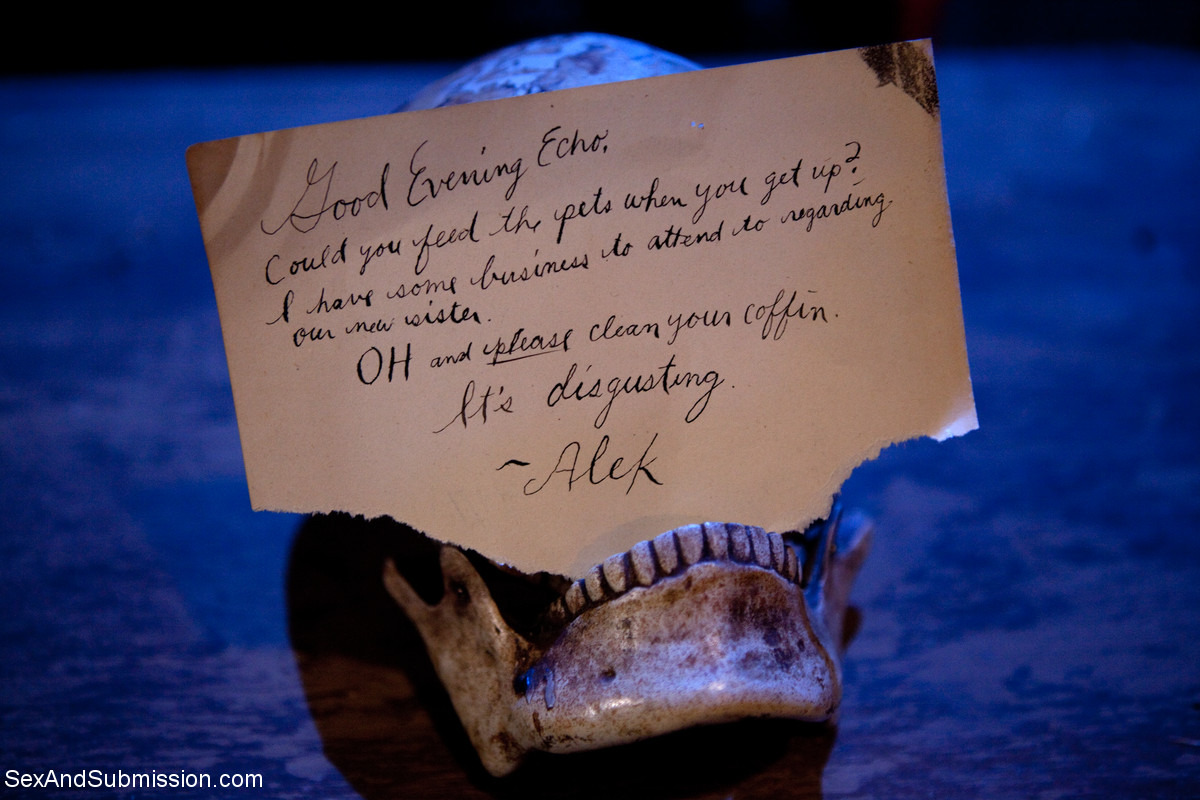 Good Evening Echo.
Could you feed the pets when you get up?
I have some business to attend to regarding
our new sister.
OH and please clean your coffin.
It's disgusting.
~Alek
SexAndSubmission.com